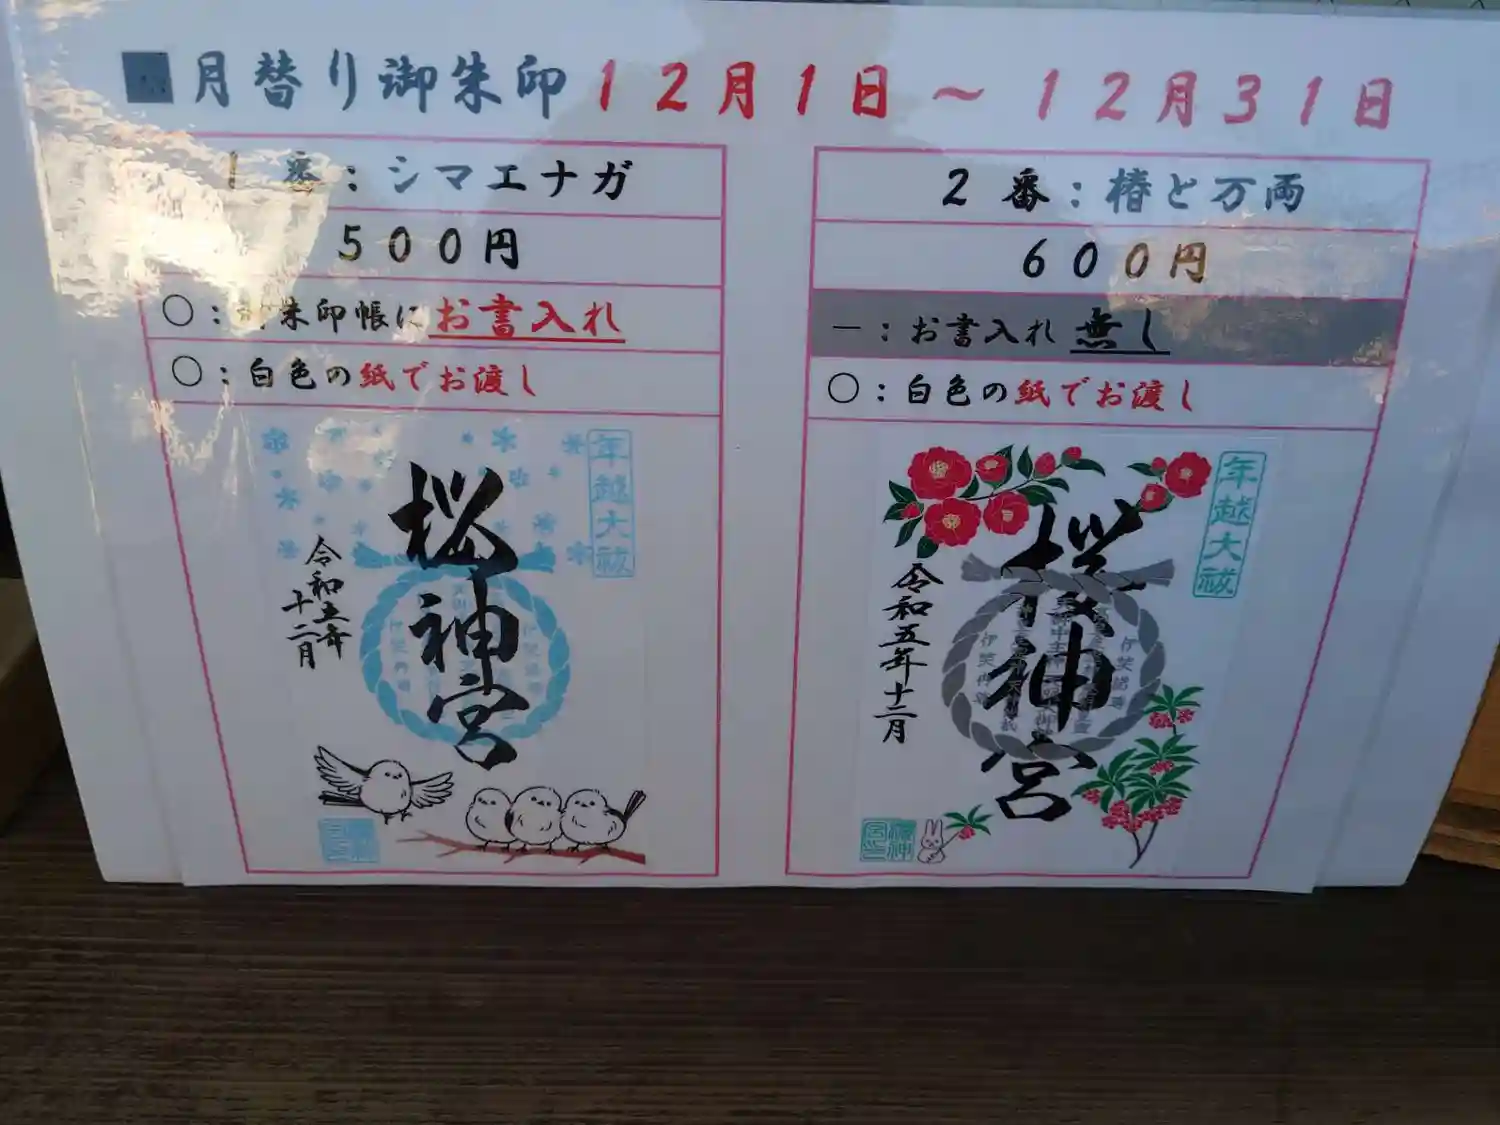 ■月替り御朱印12月1日～12月31日
1番：シマエナガ
500円
○：朱印帳にお書入れ
○：白色の紙でお渡し
年越大祓
桜神宮
令和五年
十二月
2番：椿と万両
600円
－：お書入れ無し
○：白色の紙でお渡し
年越大祓
桜神宮
令和五年十二月